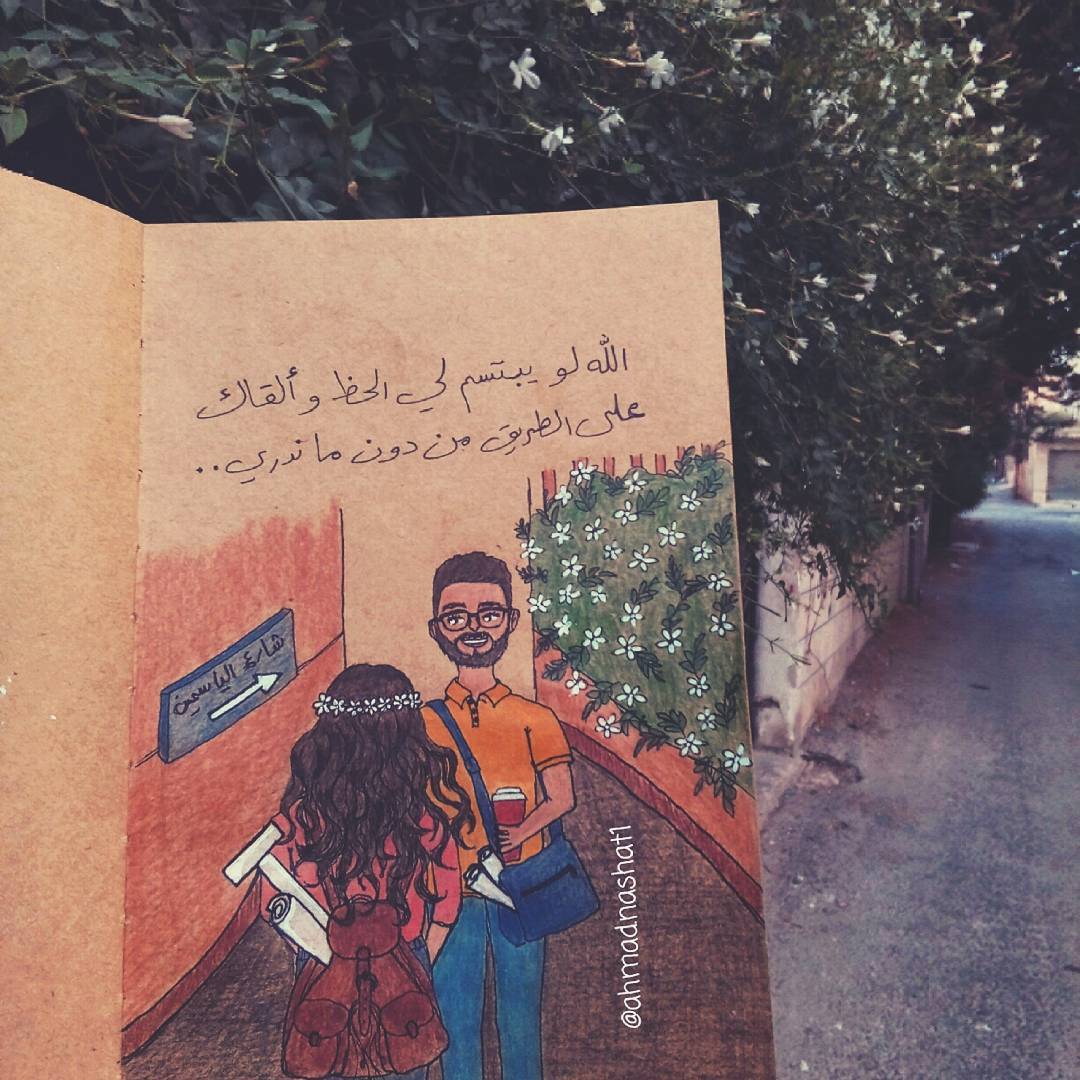 الله لو يبتسم لي الحظ و ألقاك
على الطريق من دون ما ندري..
شارع الياسمين
@ahmadnashat1